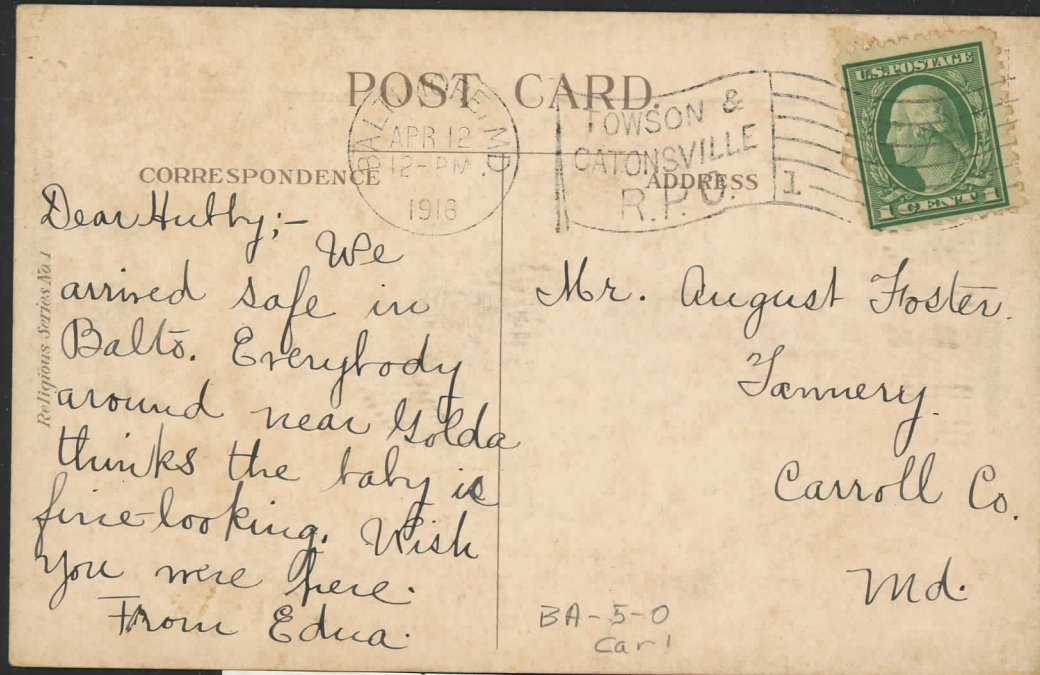 POST CARD.
BALTIMORE, MD.
APR 12
12-PM
1916
TOWSON &
CATONSVILLE
R.P.O.
1
U.S. POSTAGE
1 CENT 1
CORRESPONDENCE
ADDRESS
Religious Series No. 1
Dear Hubby;-
We
arrived safe in
Balto. Everybody
around near Golda
thinks the baby is
fine-looking. Wish
you were here.
From Edna.
Mr. August Foster.
Tannery.
Carroll Co.
Md.
BA-5-0
Car!